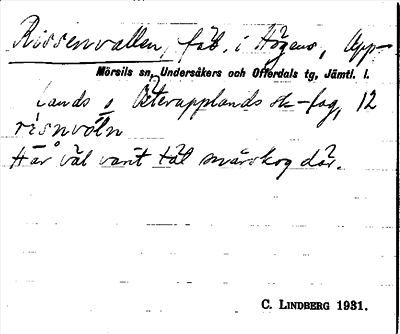 Rissenvallen, fäb. i Högens, App-
Mörsils sn, Undersåkers och Offerdals tg, Jämtl. l.
lands o Österapplands sk-lag, 12
risnvöln
Här väl varit tät småskog där.
C. LINDBERG 1931.